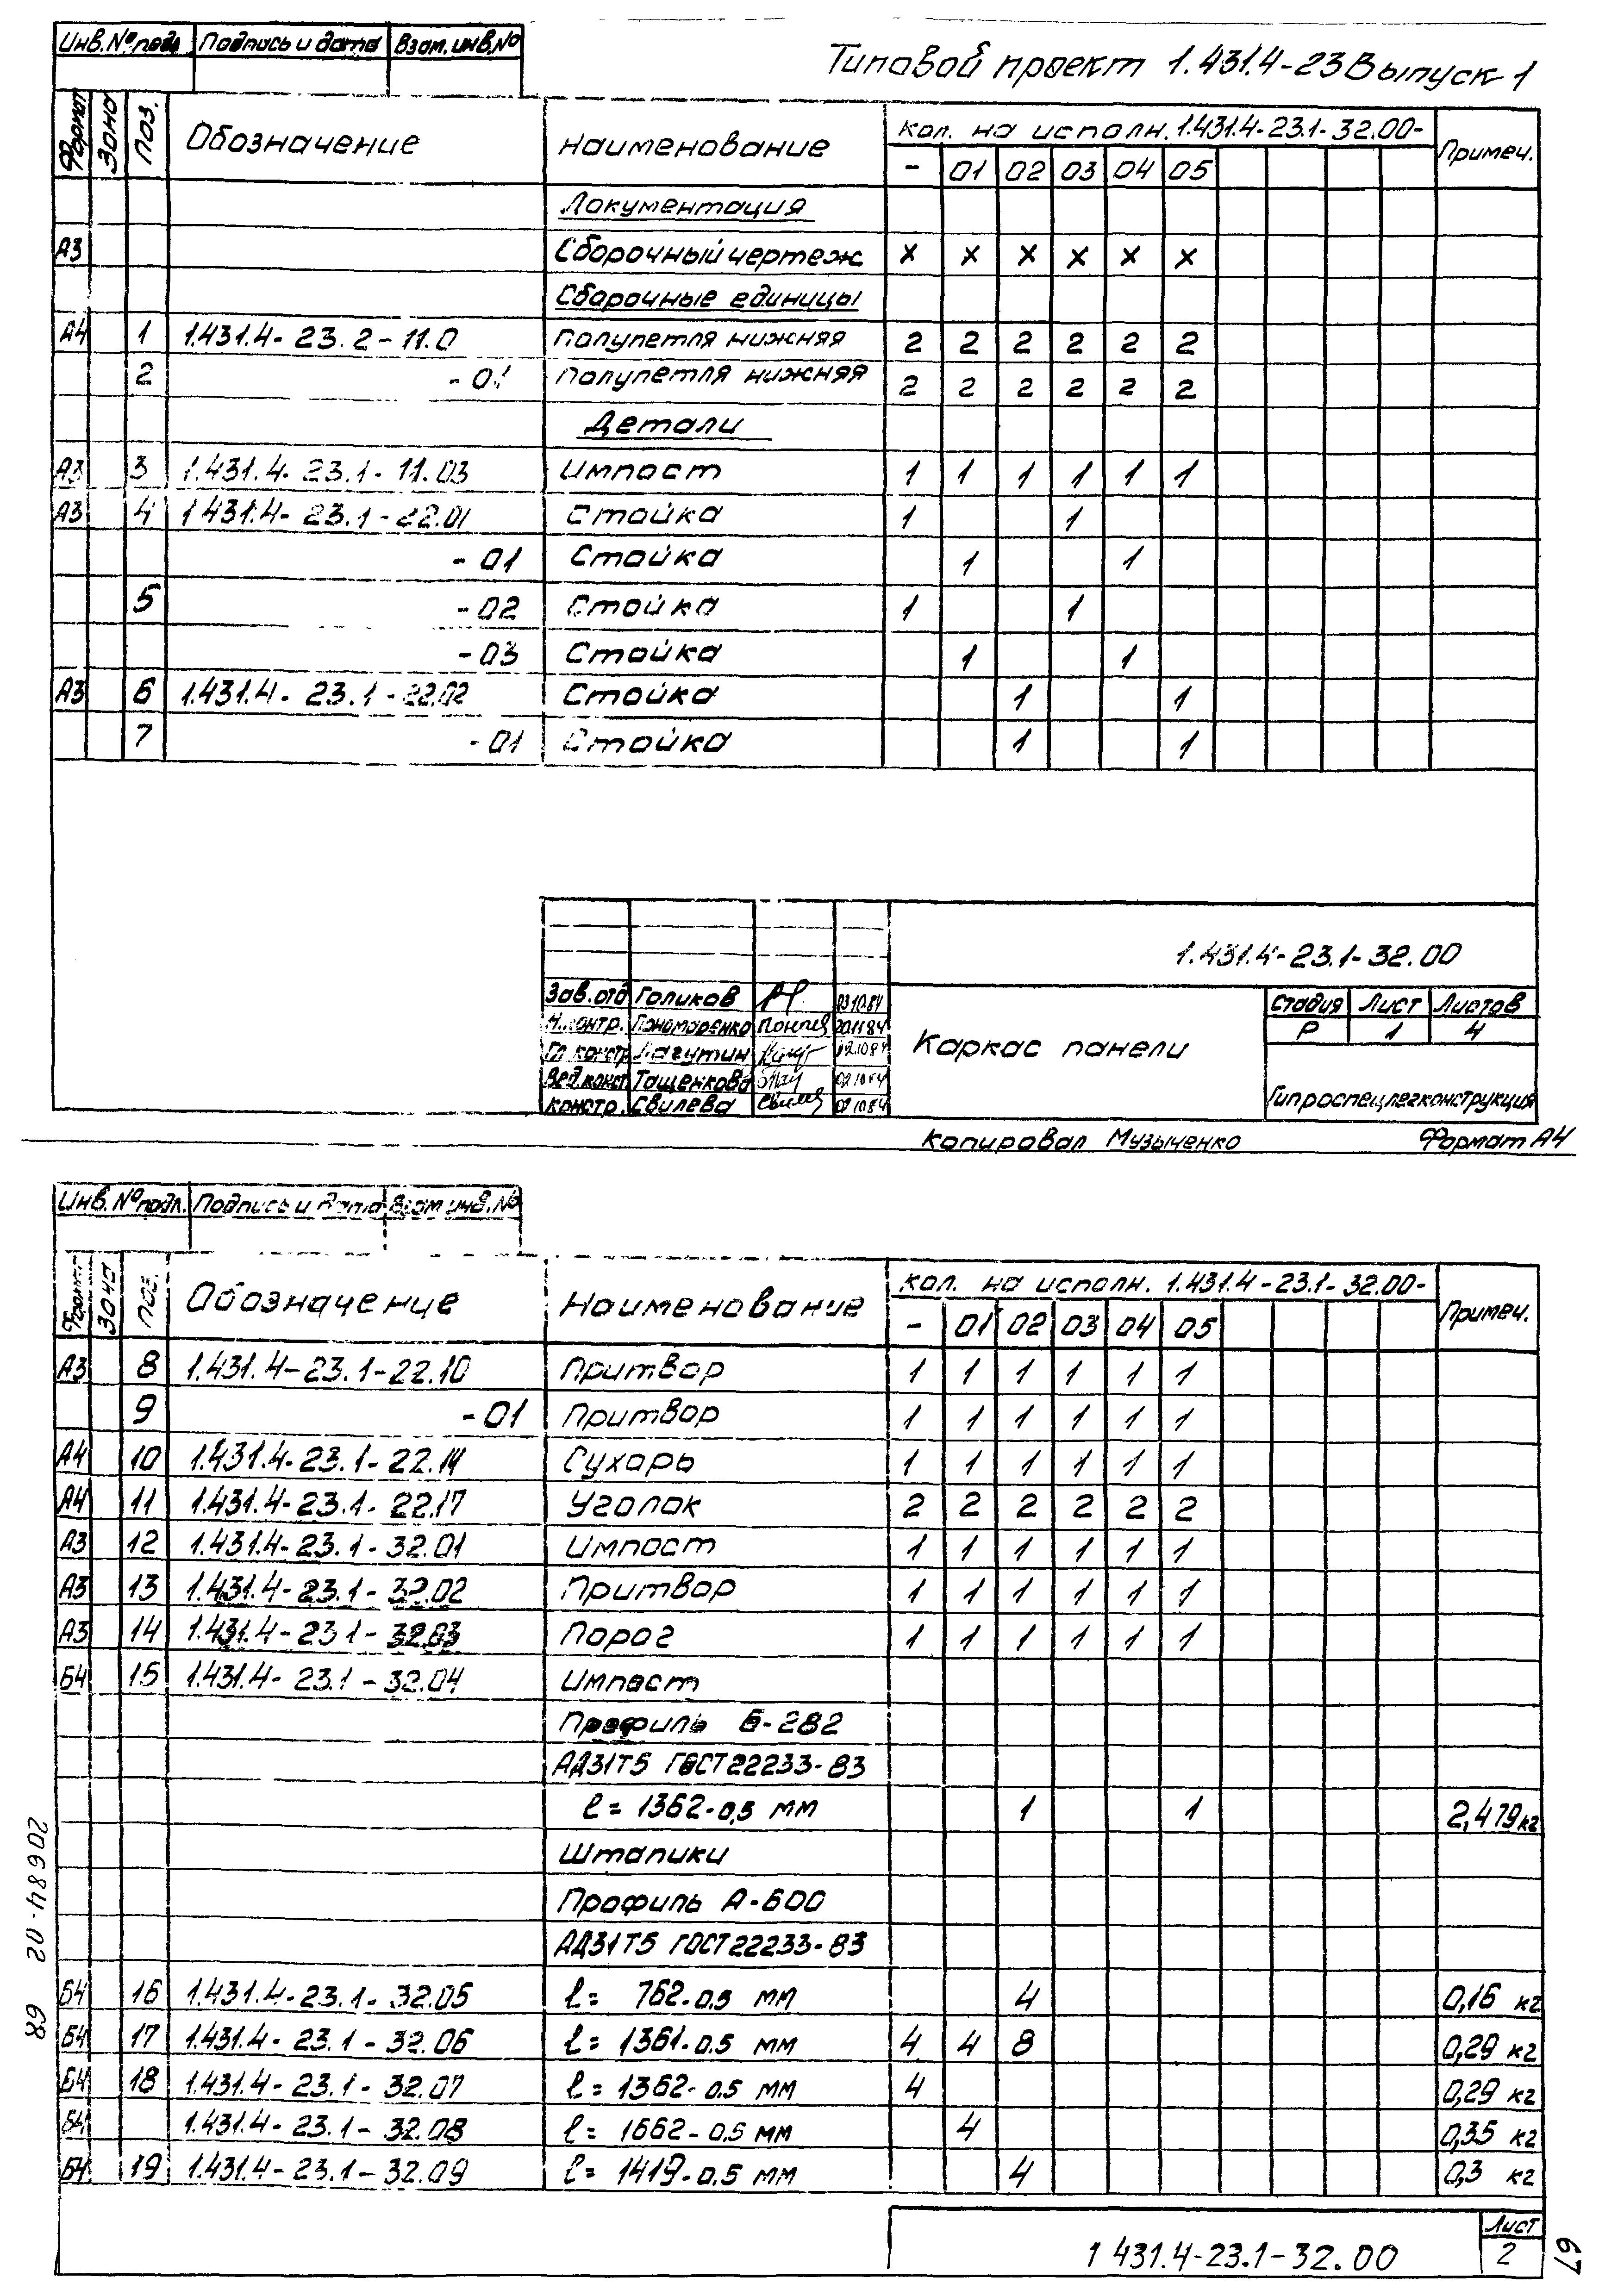 Инв.№ подл. Подпись и дата Взам.инв.№
Типовой проект 1.431.4-23 Выпуск 1
Формат Зона Поз. Обозначение Наименование Кол. на исполн. 1.431.4-23.1-32.00- Примеч.
- 01 02 03 04 05
Документация
А3 Сборочный чертеж × × × × × ×
Сборочные единицы
А4 1 1.431.4-23.2-11.0 Полупетля нижняя 2 2 2 2 2 2
2 -01 Полупетля нижняя 2 2 2 2 2 2
Детали
А3 3 1.431.4-23.1-11.03 Импост 1 1 1 1 1 1
А3 4 1.431.4-23.1-22.01 Стойка 1 1
-01 Стойка 1 1
5 -02 Стойка 1 1
-03 Стойка 1 1
А3 6 1.431.4-23.1-22.02 Стойка 1 1
7 -01 Стойка 1 1
1.431.4-23.1-32.00
Зав.отд Голиков 03.10.84
Н.контр. Пономаренко 20.11.84
Гл.констр Лагутин 02.10.84
Вед.конст. Тащенкова 02.10.84
Констр. Свилева 02.10.84
Каркас панели
Стадия Лист Листов
Р 1 4
Гипроспецлегконструкция
Копировал Музыченко Формат А4
Инв.№ подл. Подпись и дата Взам.инв.№
Формат Зона Поз. Обозначение Наименование Кол. на исполн. 1.431.4-23.1-32.00- Примеч.
- 01 02 03 04 05
А3 8 1.431.4-23.1-22.10 Притвор 1 1 1 1 1 1
9 -01 Притвор 1 1 1 1 1 1
А4 10 1.431.4-23.1-22.14 Сухарь 1 1 1 1 1 1
А4 11 1.431.4-23.1-22.17 Уголок 2 2 2 2 2 2
А3 12 1.431.4-23.1-32.01 Импост 1 1 1 1 1 1
А3 13 1.431.4-23.1-32.02 Притвор 1 1 1 1 1 1
А3 14 1.431.4-23.1-32.03 Порог 1 1 1 1 1 1
Б4 15 1.431.4-23.1-32.04 Импост
Профиль Б-282
АД31Т5 ГОСТ22233-83
ℓ= 1362-0,5 мм 1 1 2,479кг
Штапики
Профиль А-600
АД31Т5 ГОСТ22233-83
Б4 16 1.431.4-23.1-32.05 ℓ= 762-0.5 мм 4 0,16 кг
Б4 17 1.431.4-23.1-32.06 ℓ= 1361-0.5 мм 4 4 8 0,29 кг
Б4 18 1.431.4-23.1-32.07 ℓ= 1362-0.5 мм 4 0,29 кг
Б4 1.431.4-23.1-32.08 ℓ= 1662-0.5 мм 4 0,35 кг
Б4 19 1.431.4-23.1-32.09 ℓ= 1419-0.5 мм 4 0,3 кг
1 431.4-23.1-32.00
Лист
2
20684-02 68
67